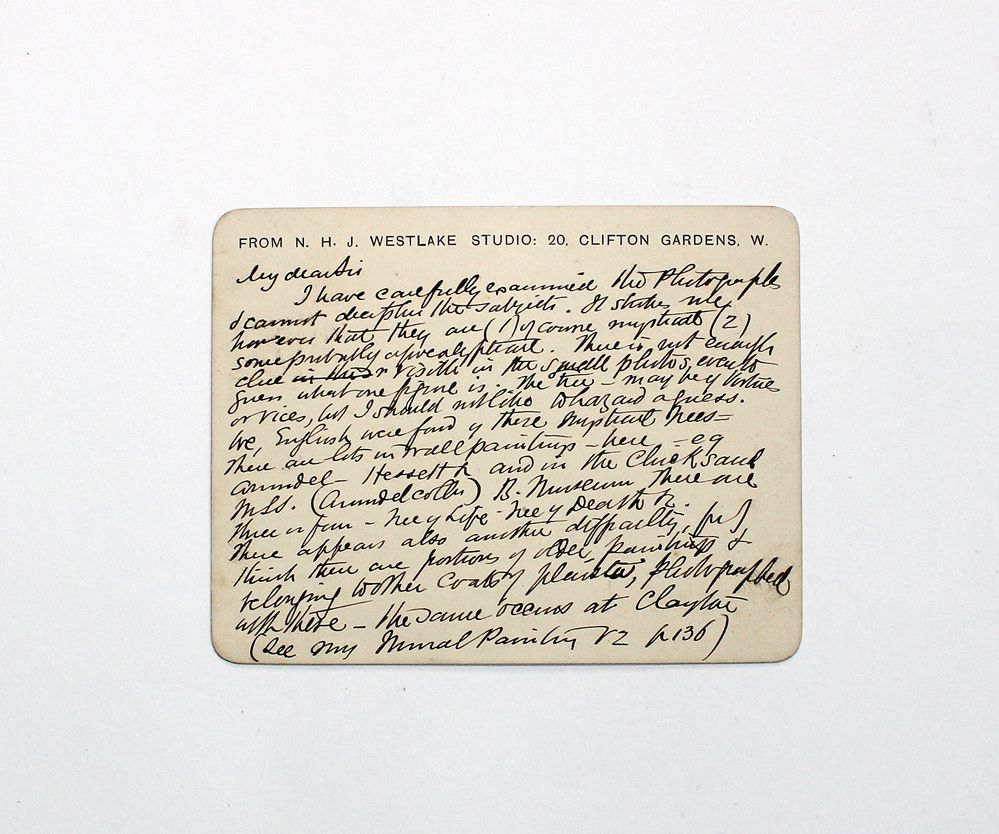 FROM N. H. J. WESTLAKE STUDIO: 20, CLIFTON GARDENS, W.
My dear Sir
I have carefully examined the Photographs
I cannot decipher the subjects. It strikes me
however that they are (1) of course mystical (2)
some probably apocalyptical. There is not enough
clue in them visible in the small photos, even to
guess what one figure is. The tree – may be of virtues
or vices, but I should not like to hazard a guess.
We, English were fond of these mystical trees –
There are lots in wall paintings – here – eg
Arundel – Hessett & and in the
MSS. (Arundel colln) B. Museum, There are
three or four – Tree of Life – Tree of Death &.
There appears also another difficulty, for I
think there are portions of older paintings &
belonging to other coats of plaster, photographed
with these – the same occurs at Clayton
(See my Mural Painting V2 p 136)